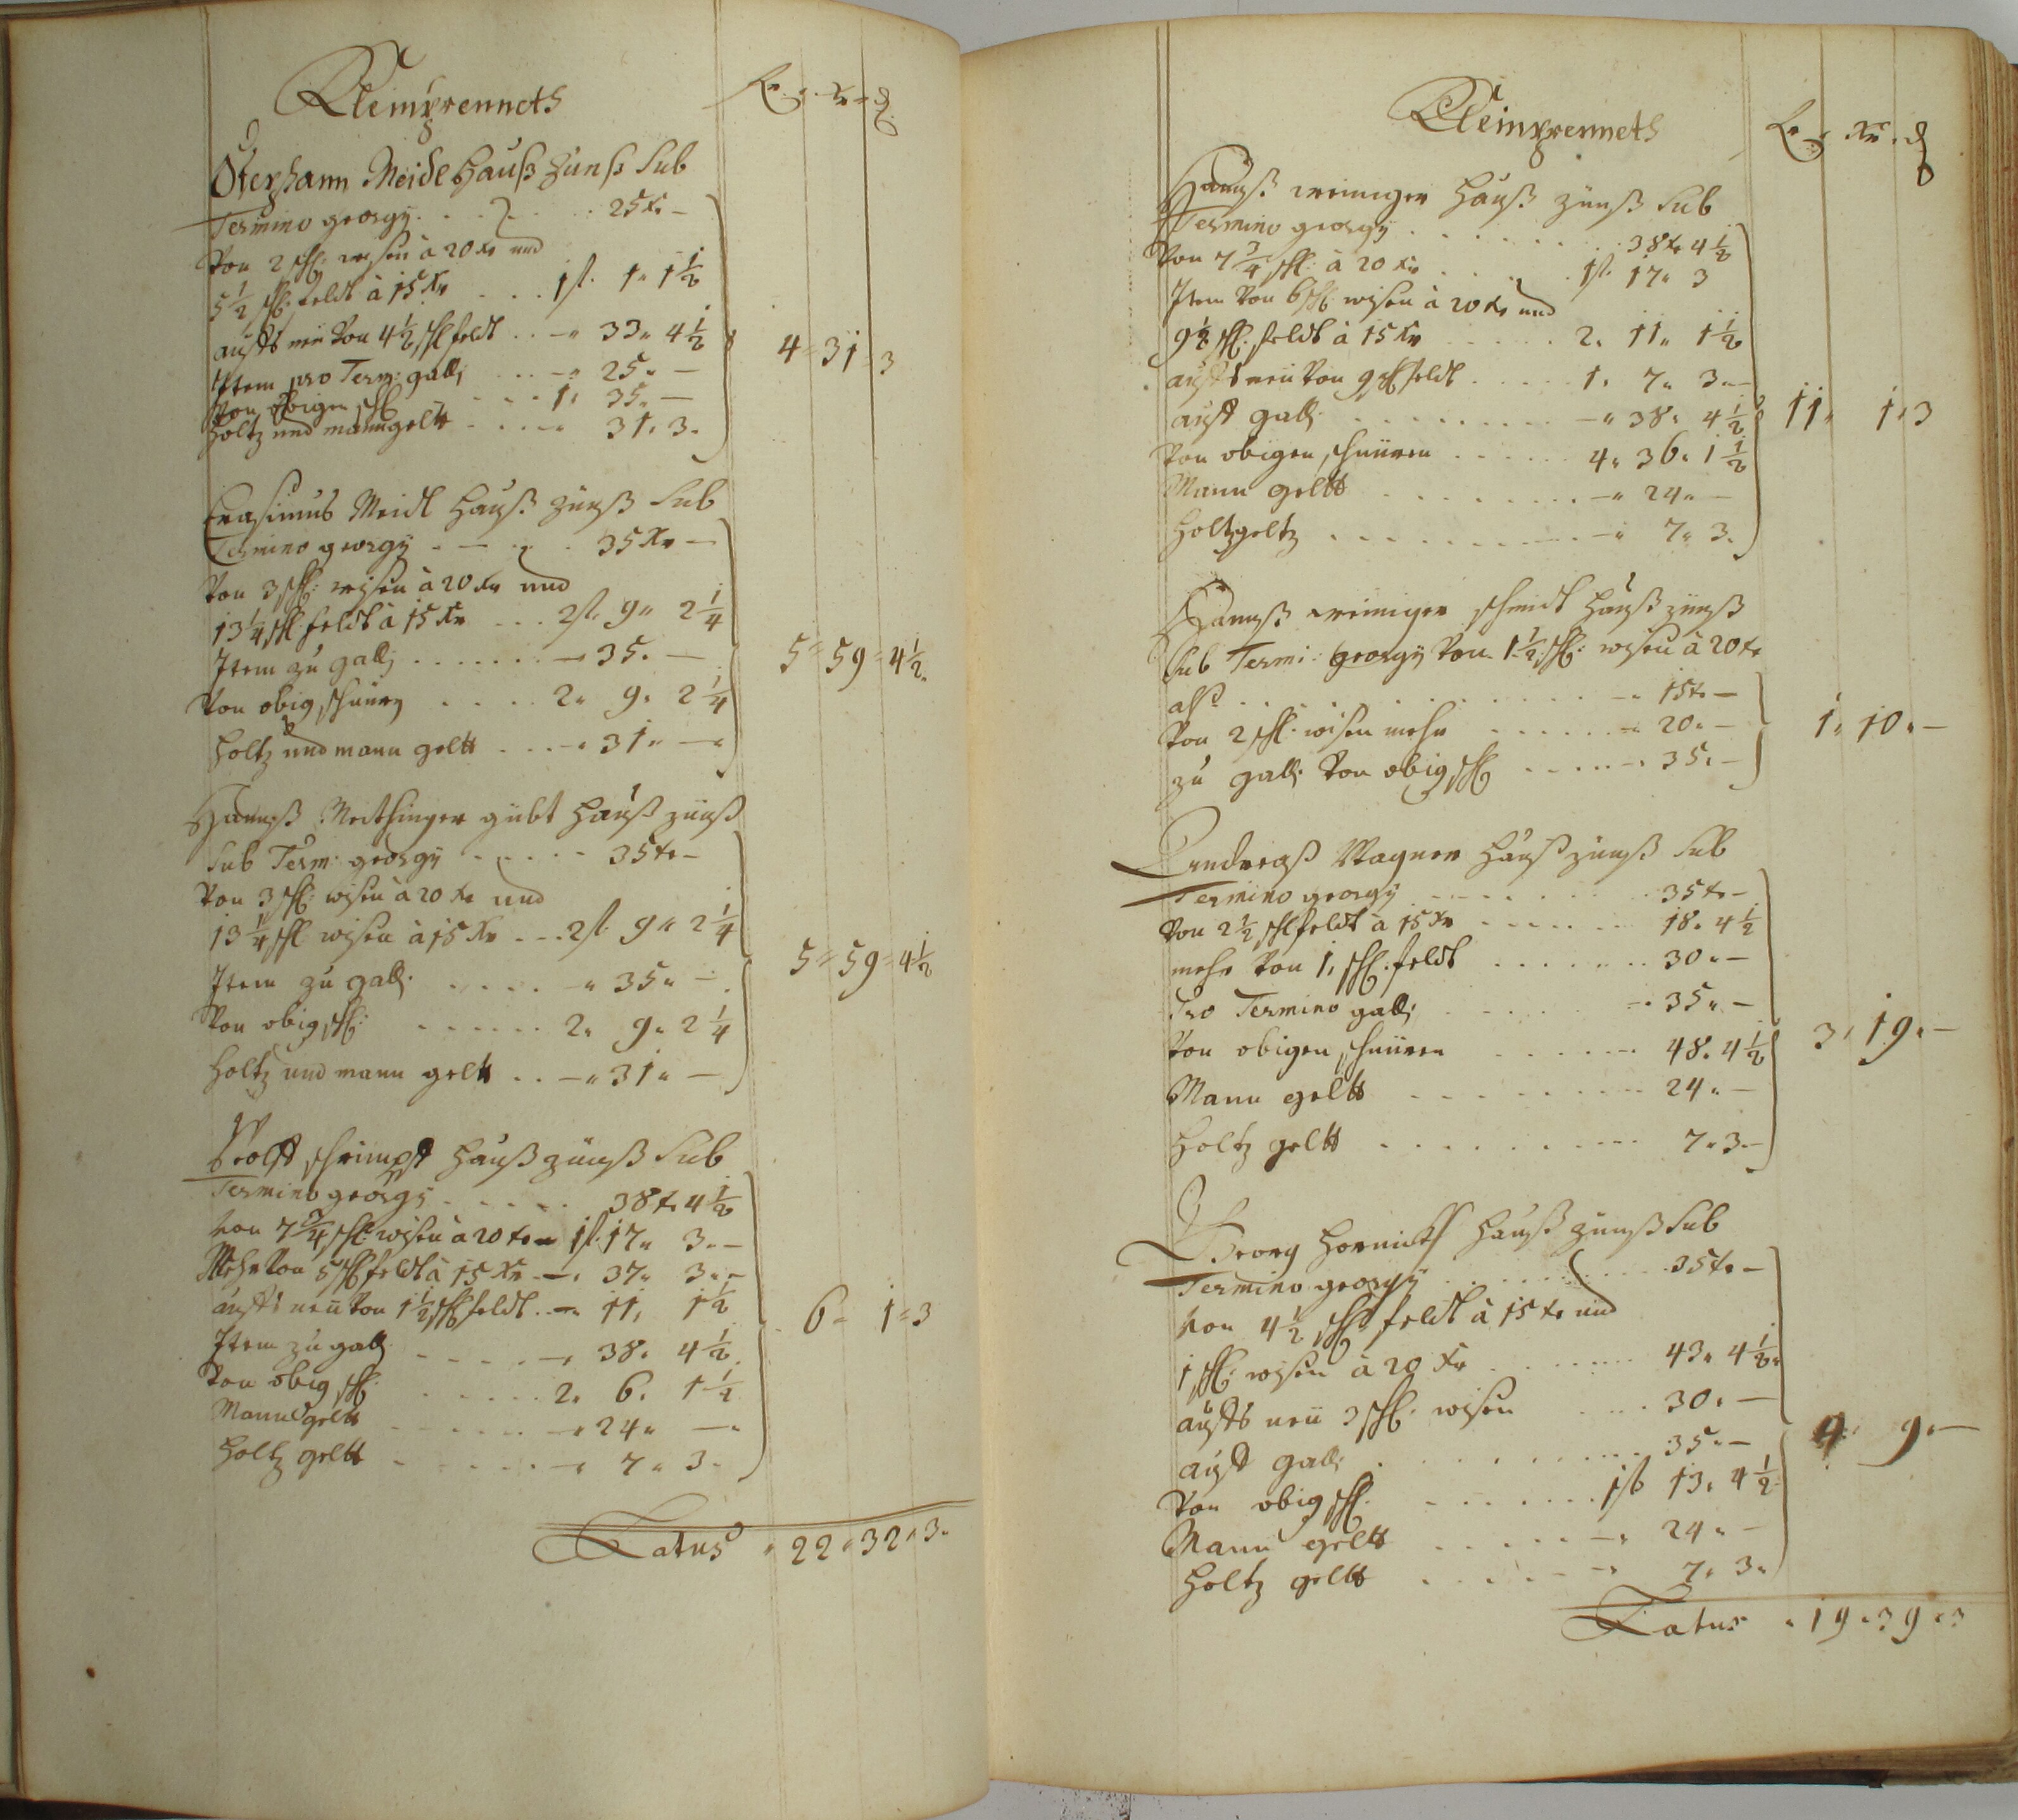 Kleinprenneth
fl. Kr. d
Stephann Meidl Hauß zünß sub
Termino georgÿ . . . 25 Kr —
Von 2 schl: wisen à 20 Kr und
5 1/2 schl: feldt à 15 Kr . . . 1 fl. 1 " 1 1/2
aufs neü Von 4 1/2 schl feldt . . — " 33 " 4 1/2
4 = 31 = 3
Item pro Term: galli . . . — " 25 " —
Von obigen schl . . . 1 " 35 " —
Holtz und manngeltt . . . — " 31 " 3 "
Erasimus Meidl Hauß zünß sub
Termino georgÿ . — . . 35 Kr —
Von 3 schl: wisen à 20 Kr und
13 1/4 schl feldt à 15 Kr . . . 2 fl. 9 " 2 1/4
Item zu galli . . . . . . — 35 " —
5 = 59 = 4 1/2
Von obig schnürn . . . . 2 " 9 " 2 1/4
Holtz und mann geltt . . . — " 31 " — "
Hannß Meithinger gibt Hauß zünß
sub Term: georgÿ . . . . . 35 Kr —
Von 3 schl: wisen à 20 Kr und
13 1/4 schl wisen à 15 Kr . . . 2 fl. 9 " 2 1/4
Item zu galli . . . . — " 35 " —
5 = 59 = 4 1/2
Von obig schl: . . . . . . 2 " 9 " 2 1/4
Holtz und mann geltt . . — " 31 " —
Wolff schrimpff Hauß zünß sub
Termino georgÿ . . . . . 38 Kr 4 1/2
Von 7 3/4 schl: wisen à 20 Kr — 1 fl. 17 " 3 " —
Mehr Von 5 schl feldt à 15 Kr — " 37 " 3 " —
aufs neü Von 1 1/2 schl feldt . — " 11 " 1 1/2
6 = 1 = 3
Item zu galli . . . . — " 38 " 4 1/2
Von obig schl: . . . . . 2 " 6 " 1 1/2
Mann geltt . . . . . — " 24 " — "
Holtz geltt . . . . . — " 7 " 3 "
Latus " 22 " 32 " 3 "
Kleinprenneth
fl. Kr. d
Hannß weiniger Hauß zünß sub
Termino georgÿ . . . . . . . 38 Kr 4 1/2
Von 7 3/4 schl: à 20 Kr . . . . 1 fl. 17 " 3
Item Von 6 schl: wisen à 20 Kr und
9 1/2 schl: feldt à 15 Kr . . . . . 2 " 11 " 1 1/2
aufs neü Von 9 schl feldt . . . . . 1 " 7 " 3 " —
auff galli . . . . . . . . . — " 38 " 4 1/2
11 " 1 " 3
Von obigen schnüren . . . . . 4 " 36 " 1 1/2
Mann geltt . . . . . . . . . — " 24 " —
Holtzgeltz . . . . . . . . . — " 7 " 3 "
Hannß weiniger schmidt Hauß zünß
sub Termi: georgÿ Von 1 1/2 schl: wisen à 20 Kr
alß . . . . . . . . . . — " 15 Kr —
Von 2 schl: wisen mehr . . . . . — " 20 " —
1 " 10 " —
zu galli Von obig schl . . . . — " 35 " —
Andreaß Wagner Hauß zünß sub
Termino georgÿ . . . . . . . 35 Kr —
Von 2 1/2 schl feldt à 15 Kr . . . . . . 18 " 4 1/2
mehr Von 1 schl: feldt . . . . . . . 30 " —
Pro Termino galli . . . . . . — " 35 " —
3 " 19 " —
Von obigen schnüren . . . . . . 48 " 4 1/2
Mann geltt . . . . . . . . 24 " —
Holtz geltt . . . . . . . . . 7 " 3 " —
Georg Hornickh Hauß zünß sub
Termino georgÿ . . . . . . . 35 Kr —
Von 4 1/2 schl: feldt à 15 Kr und
1 schl: wisen à 20 Kr . . . . . . 43 " 4 1/2 "
aufs neü 3 schl: wisen . . . . 30 " —
4 " 9 " —
auff galli . . . . . . . . . 35 " —
Von obig schl: . . . . . . . 1 fl 13 " 4 1/2
Mann geltt . . . . . — " 24 " —
Holtz geltt . . . . . — " 7 " 3 "
Latus " 19 " 39 " 3